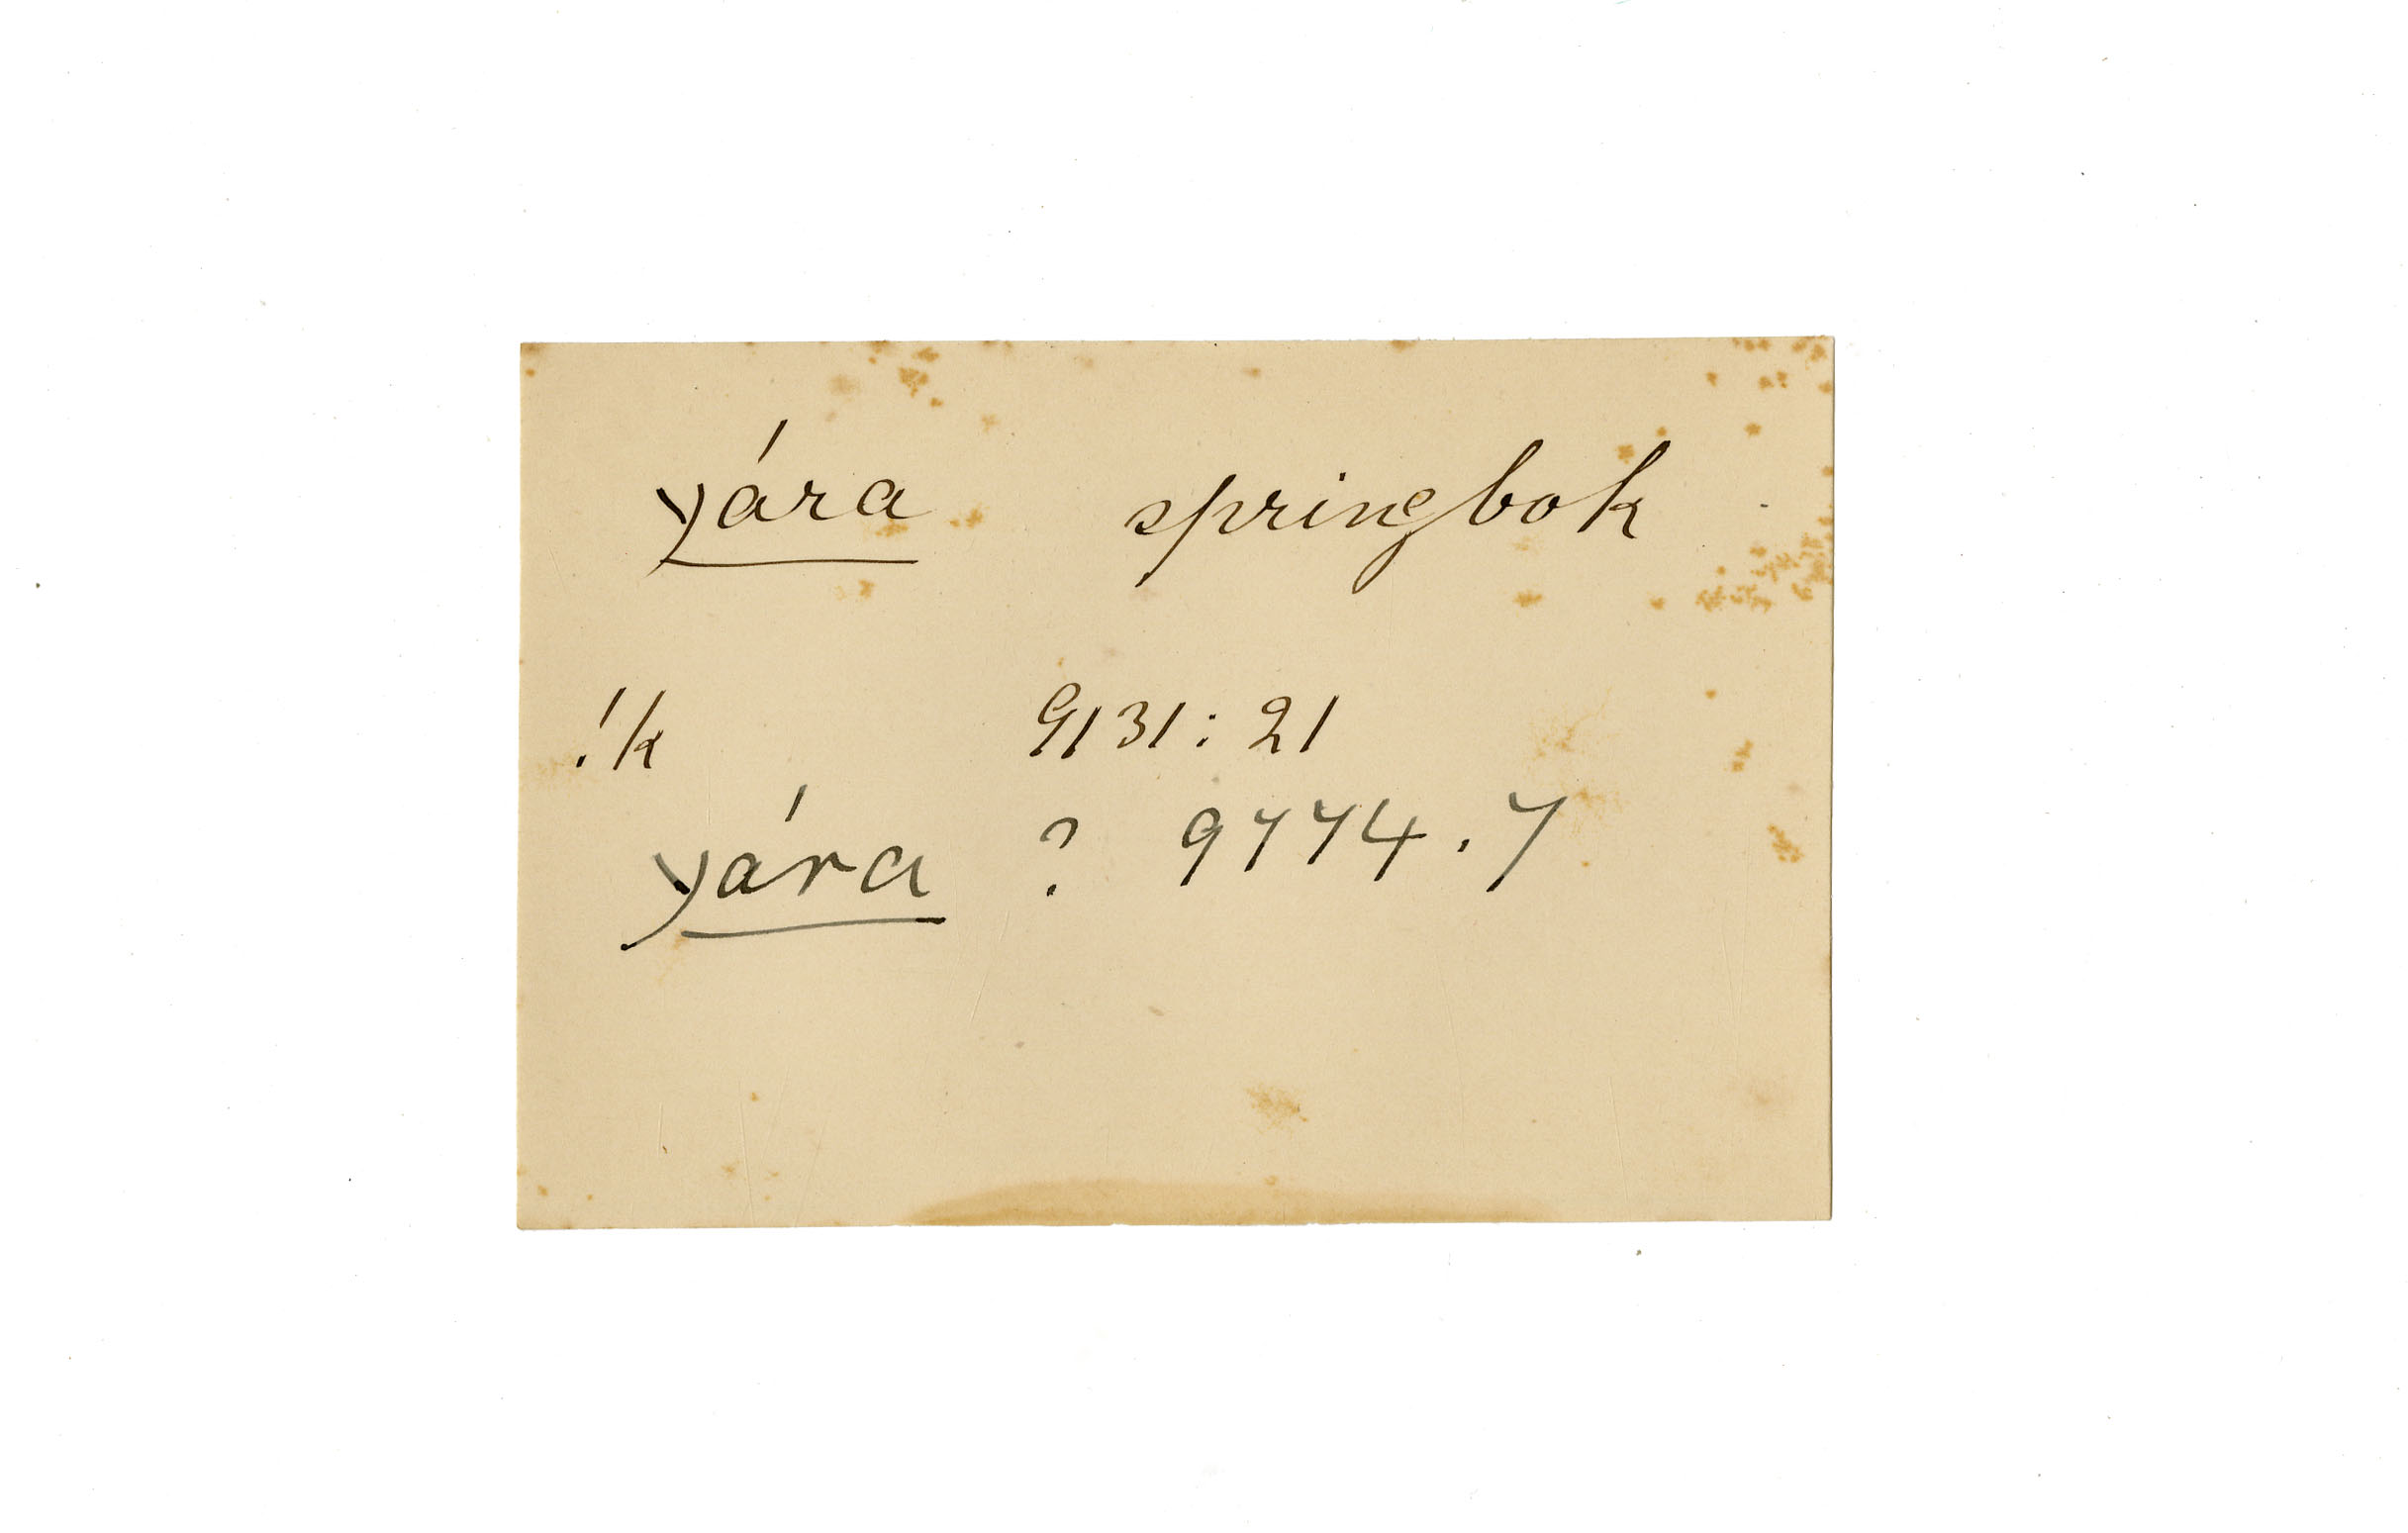 yára springbok
!k 9131: 21
yára ? 9774.7